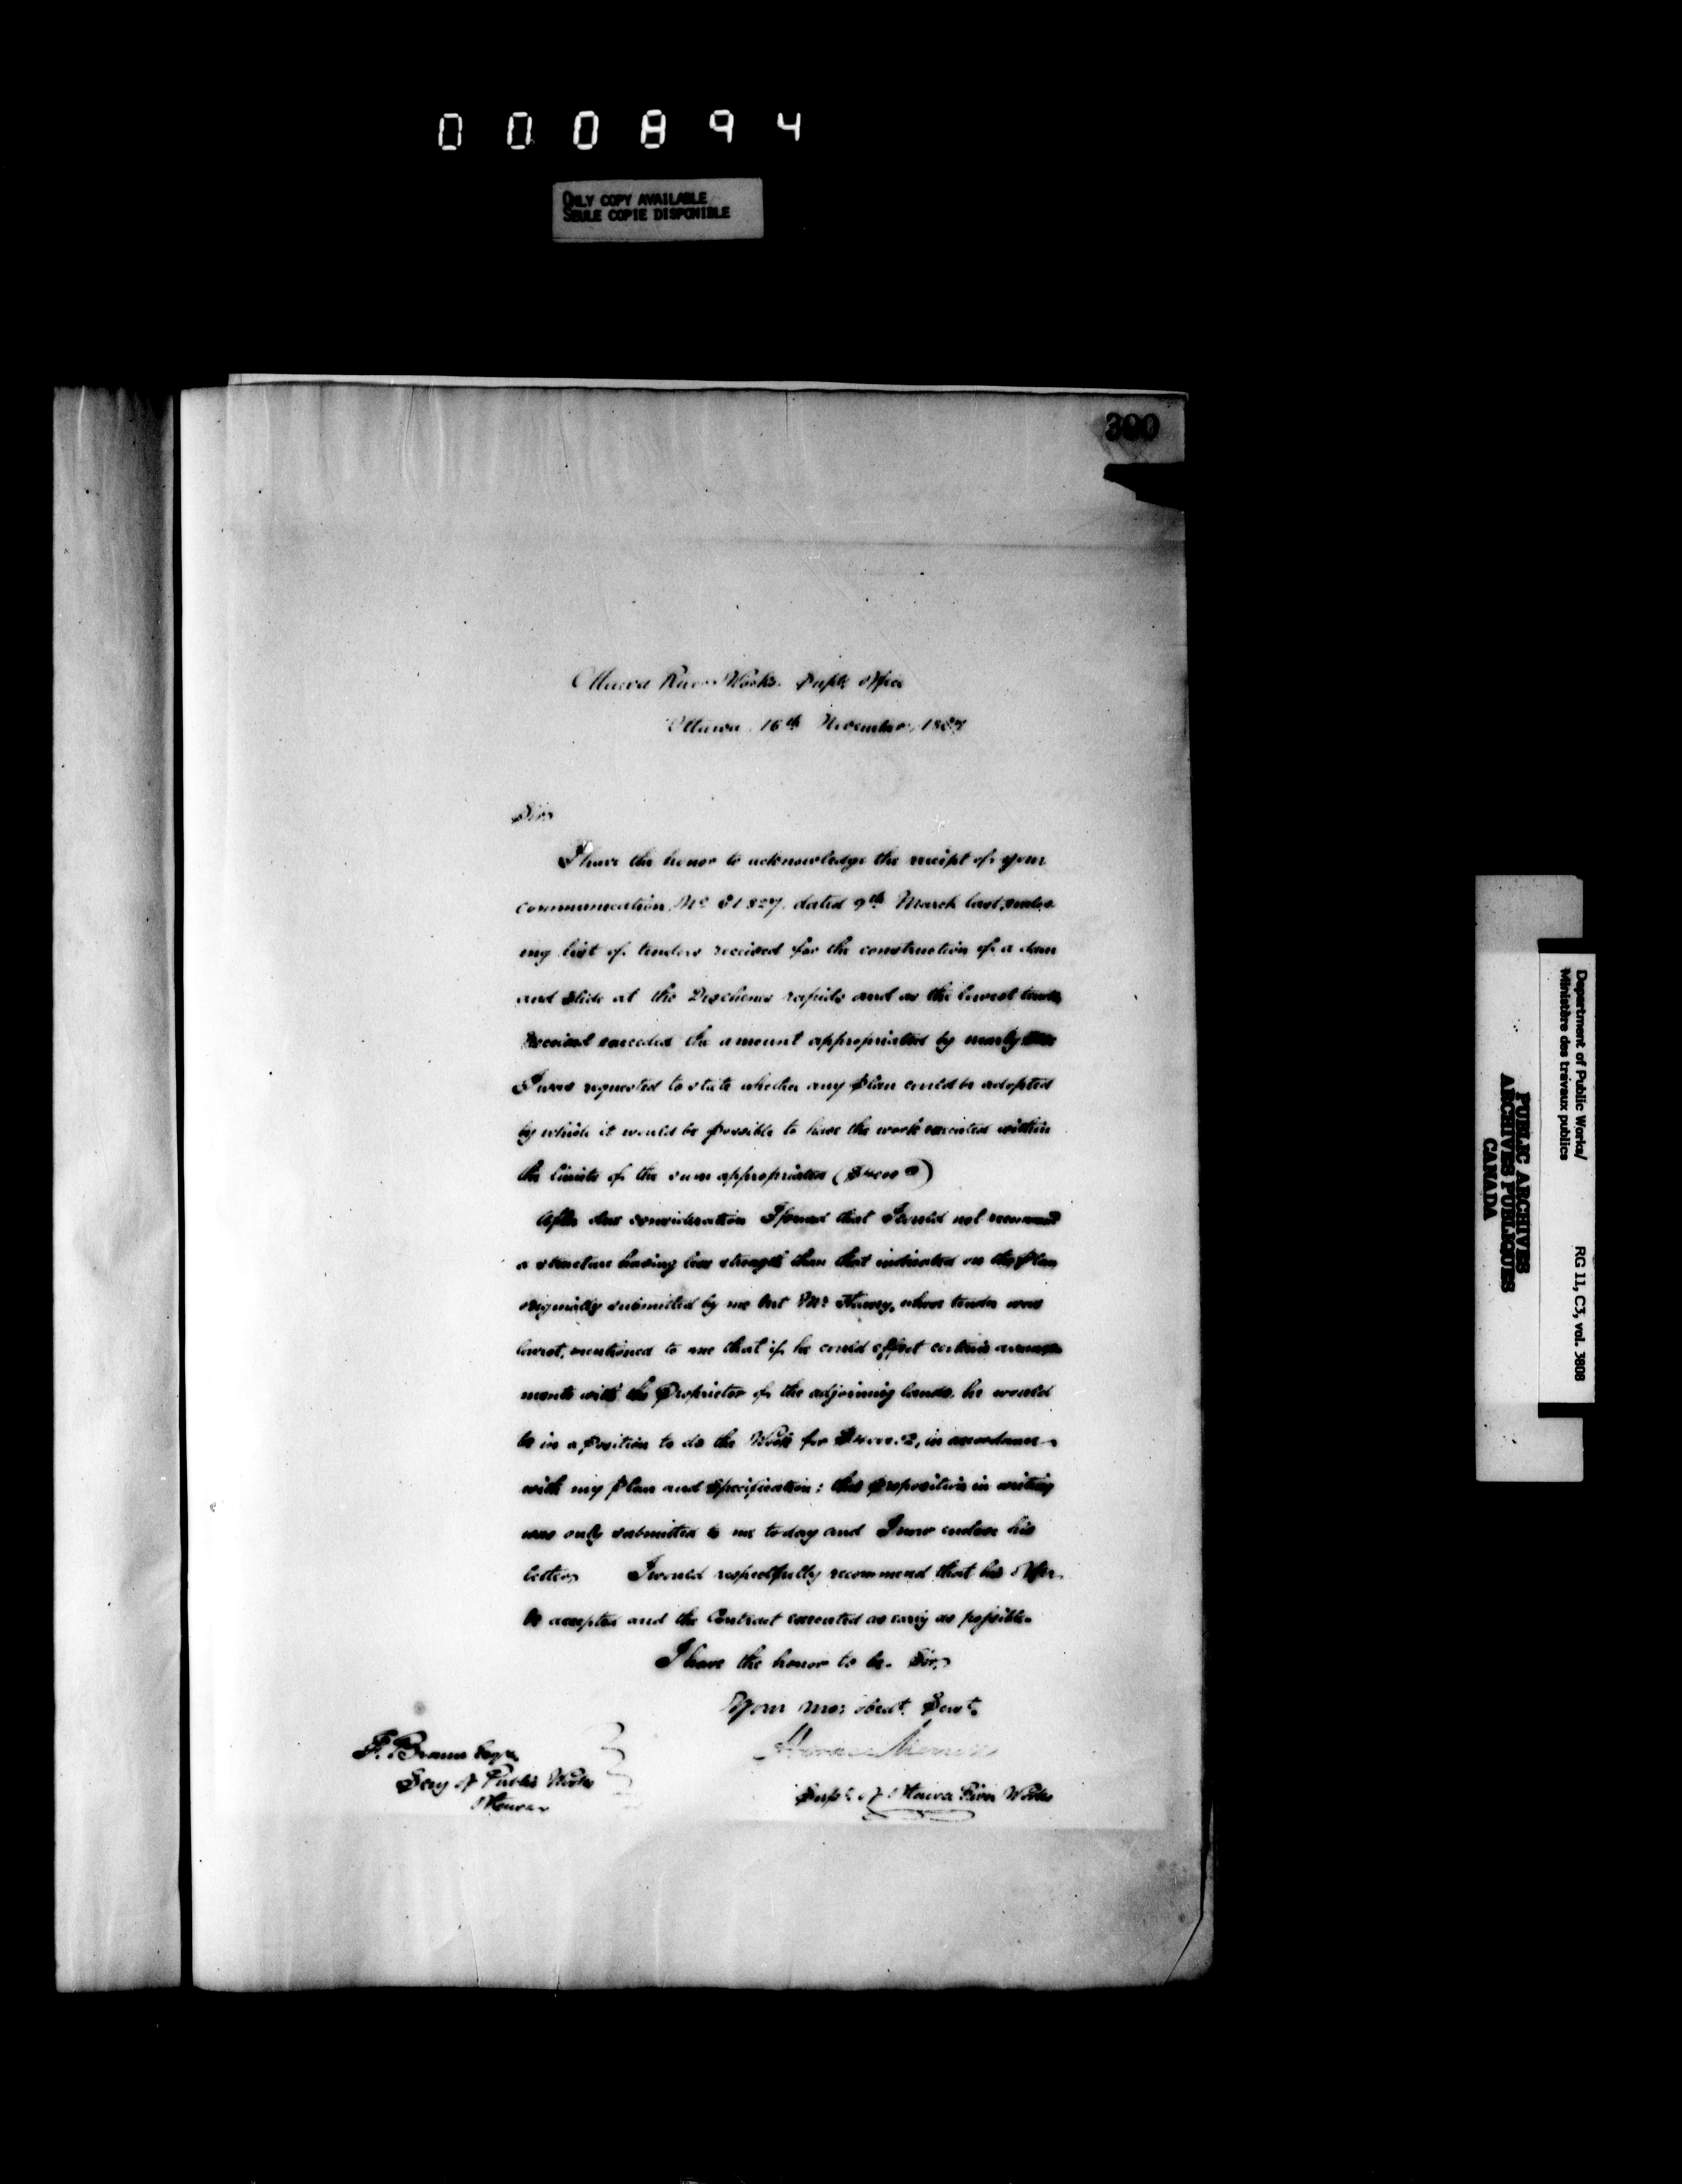 000894
ONLY COPY AVAILABLE
SEULE COPIE DISPONIBLE
390
Ottawa River Works. Supts Office
Ottawa, 16th November, 1867
Sir,
I have the honor to acknowledge the receipt of your
communication, No 61827, dated 9th March last,
my list of tenders received for the construction of a dam
and slide at the Deschenes rapids and as the lowest tender
received exceeded the amount appropriated by nearly
I was requested to state whether any plan could be adopted
by which it would be possible to have the work executed within
the limits of the sum appropriated ($4000 00)
After due consideration I found that I could not recommend
a structure having less strength than that indicated on the plan
originally submitted by me but Mr, whose tender was
lowest, mentioned to me that if he could effect certain arrange
ments with the Proprietor of the adjoining lands, he would
be in a position to do the Work for, in accordance
with my plan and specification: this proposition in writing
was only submitted to me today and I now enclose his
letter. I would respectfully recommend that his Offer
be accepted and the Contract executed as early as possible.
I have the honor to be. Sir,
Your mo: obedt. Servt.
Horace Merrill
Supt. of Ottawa River Works
F. Braun Esqre
Secy of Public Works
Ottawa
Department of Public Works/
Ministère des travaux publics
RG 11, C3, vol. 3808
PUBLIC ARCHIVES
ARCHIVES PUBLIQUES
CANADA